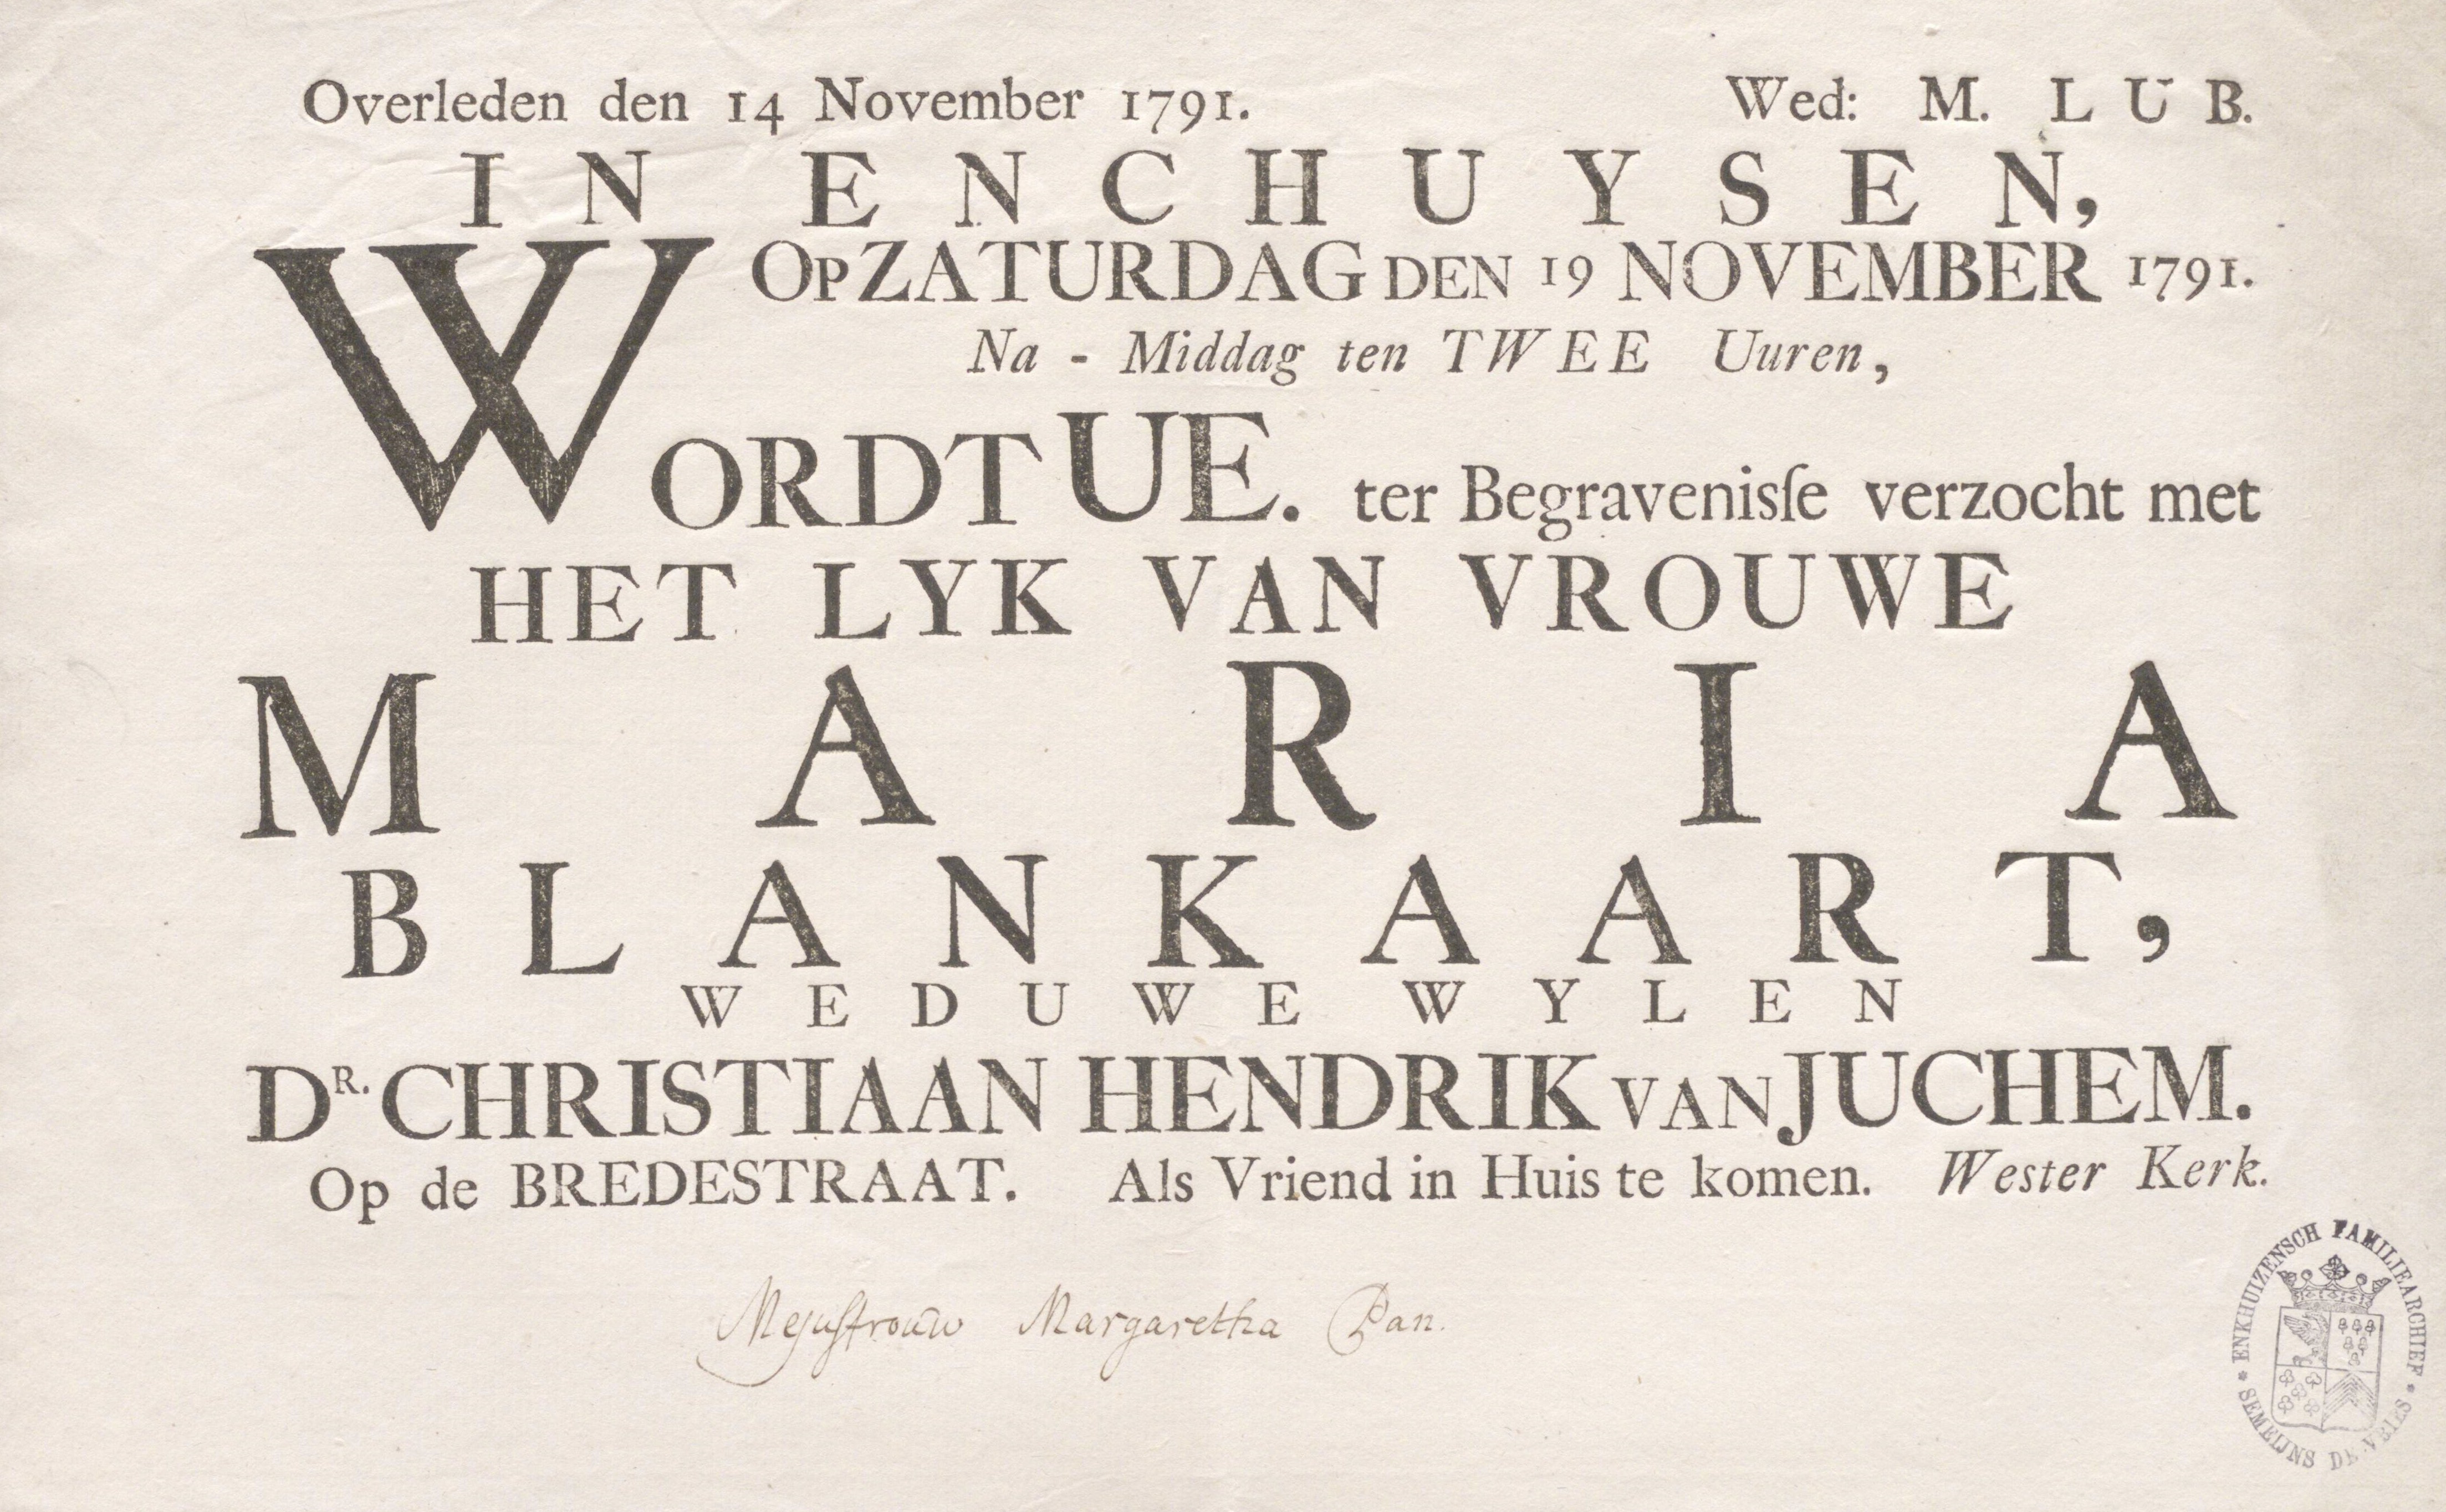 Overleden den 14 November 1791. Wed: M. LUB.
IN ENCHUYSEN,
OP ZATURDAG DEN 19 NOVEMBER 1791.
Na - Middag ten TWEE Uuren,
WORDT UE. ter Begravenisſe verzocht met
HET LYK VAN VROUWE
MARIA
BLANKAART,
WEDUWE WYLEN
DR. CHRISTIAAN HENDRIK VAN JUCHEM.
Op de BREDESTRAAT. Als Vriend in Huis te komen. Wester Kerk.
Mejuffrouw Margaretha Pan.
ENKHUIZENSCH FAMILIEARCHIEF
SEMEIJNS DE VRIES